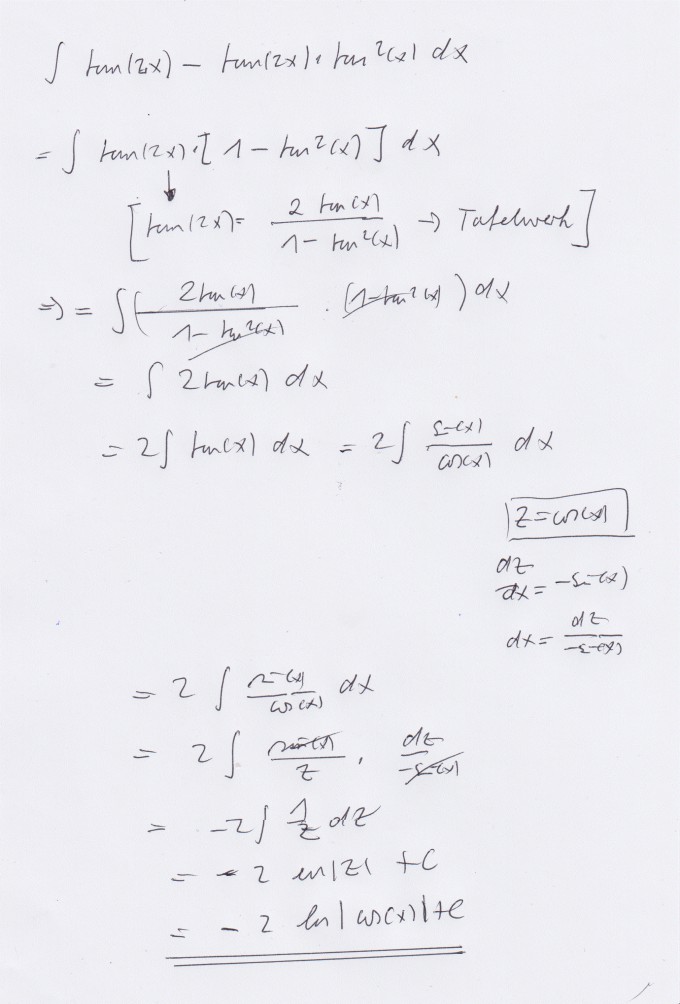 ∫ tan(2x) - tan(2x) · tan²(x) dx
= ∫ tan(2x) · [ 1 - tan²(x) ] dx
↓
[ tan(2x) = 2 tan(x) / 1 - tan²(x) → Tafelwerk ]
⇒ = ∫ ( 2 tan(x) / 1 - tan²(x) · (1 - tan²(x)) ) dx
= ∫ 2 tan(x) dx
= 2 ∫ tan(x) dx = 2 ∫ sin(x) / cos(x) dx
z = cos(x)
dz / dx = - sin(x)
dx = dz / - sin(x)
= 2 ∫ sin(x) / cos(x) dx
= 2 ∫ sin(x) / z · dz / - sin(x)
= -2 ∫ 1/z dz
= - 2 ln|z| + C
= - 2 ln|cos(x)| + C